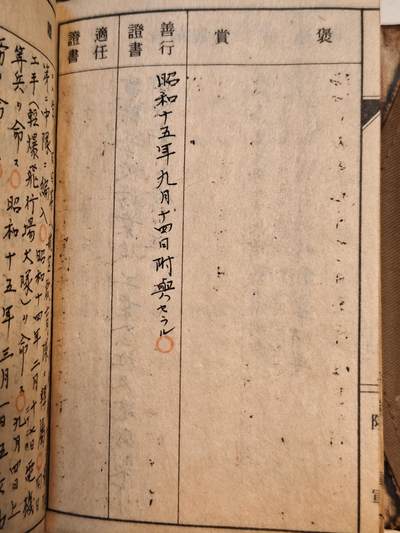 陸軍
褒賞
善行證書
昭和十五年九月十四日附與セラル
適任證書
中隊ニ編入 昭和十四年二月
工手(輕爆飛行場大隊)ヲ命ス 九月四日上
等兵ヲ命ス 昭和十五年三月一日